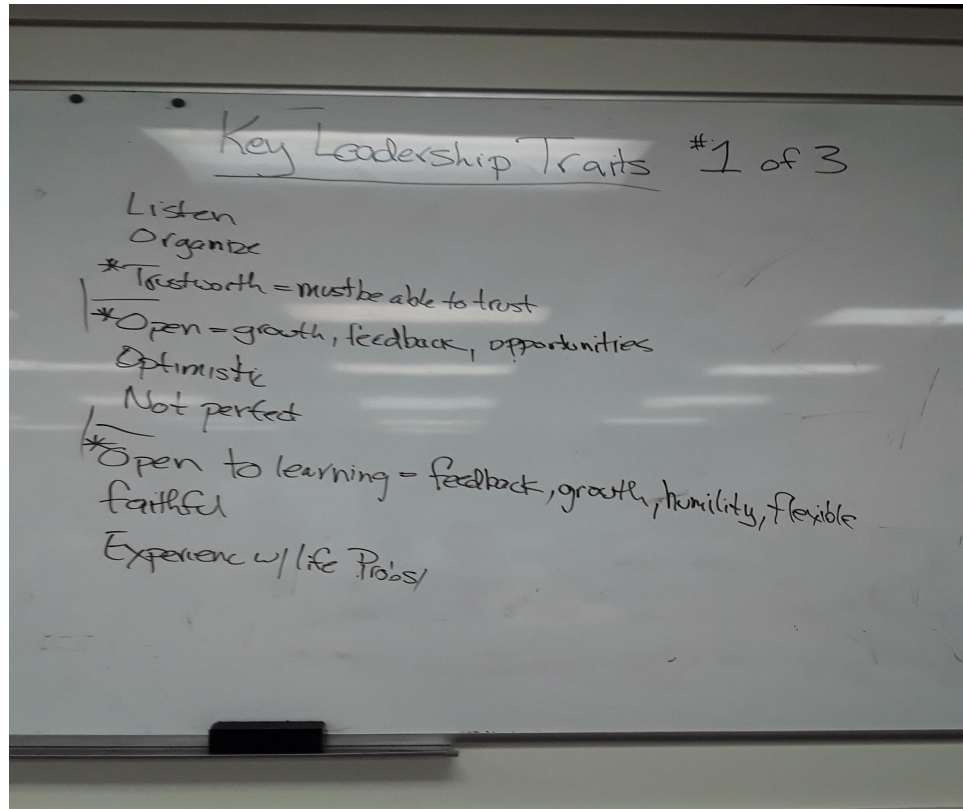 Key Leadership Traits #1 of 3
Listen
Organize
*Trustworth = must be able to trust
*Open = growth, feedback, opportunities
Optimistic
Not perfect
*Open to learning = feedback, growth, humility, flexible
faithful
Experienc w/ life Probs/